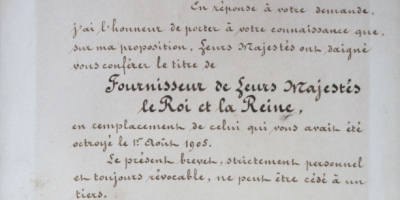 En réponse à votre demande,
j'ai l'honneur de porter à votre connaissance que,
sur ma proposition, Leurs Majestés ont daigné
vous conférer le titre de
Fournisseur de Leurs Majestés
le Roi et la Reine,
en remplacement de celui qui vous avait été
octroyé le 1er Août 1905.
Le présent brevet, strictement personnel
et toujours révocable, ne peut être cédé à un
tiers.